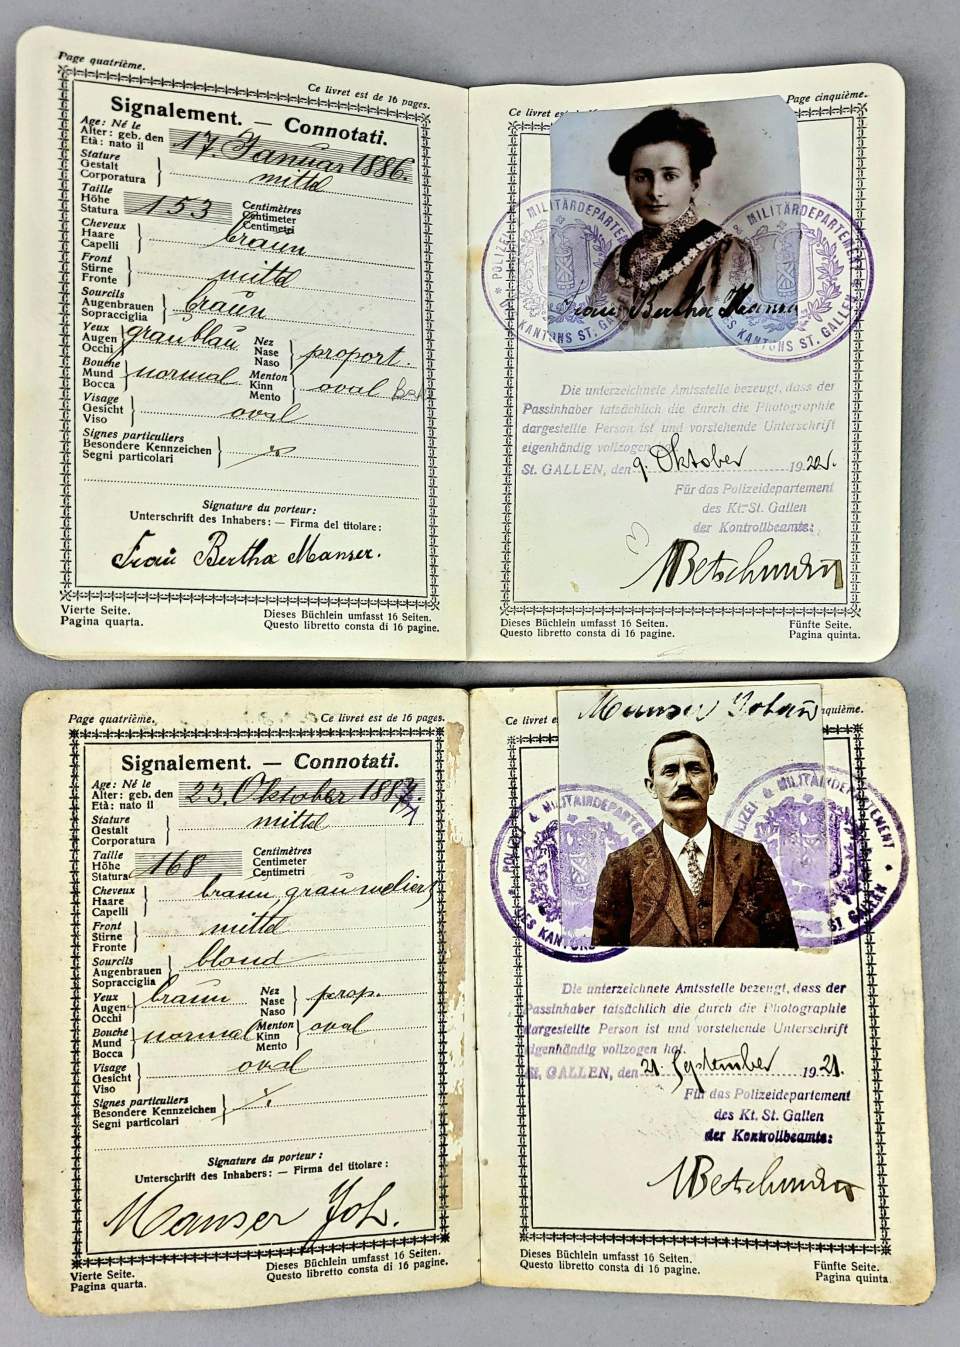 Page quatrième.
Ce livret est de 16 pages.
Signalement. — Connotati.
Age: Né le
Alter: geb. den
Età: nato il
17. Januar 1886.
Stature
Gestalt
Corporatura
mittel
Taille
Höhe
Statura
153
Centimètres
Centimeter
Centimetri
Cheveux
Haare
Capelli
braun
Front
Stirne
Fronte
mittel
Sourcils
Augenbrauen
Sopracciglia
braun
Yeux
Augen
Occhi
graublau
Nez
Nase
Naso
proport.
Bouche
Mund
Bocca
normal
Menton
Kinn
Mento
oval
Visage
Gesicht
Viso
oval
Signes particuliers
Besondere Kennzeichen
Segni particolari
Signature du porteur:
Unterschrift des Inhabers: — Firma del titolare:
Frau Bertha Manser.
Vierte Seite.
Pagina quarta.
Dieses Büchlein umfasst 16 Seiten.
Questo libretto consta di 16 pagine.
Ce livret es
Page cinquième.
MILITÄRDEPARTE
KANTONS ST. GA
MILITÄRDEPARTEMEN
ES KANTONS ST. GALLEN
Frau Bertha Manser
Die unterzeichnete Amtsstelle bezeugt, dass der
Passinhaber tatsächlich die durch die Photographie
dargestellte Person ist und vorstehende Unterschrift
eigenhändig vollzogen
St. GALLEN, den 9. Oktober 19
Für das Polizeidepartement
des Kt. St. Gallen
der Kontrollbeamte:
Dieses Büchlein umfasst 16 Seiten.
Questo libretto consta di 16 pagine.
Fünfte Seite.
Pagina quinta.
Page quatrième.
Ce livret est de 16 pages.
Signalement. — Connotati.
Age: Né le
Alter: geb. den
Età: nato il
23. Oktober
Stature
Gestalt
Corporatura
mittel
Taille
Höhe
Statura
168
Centimètres
Centimeter
Centimetri
Cheveux
Haare
Capelli
braun, grau meliert
Front
Stirne
Fronte
mittel
Sourcils
Augenbrauen
Sopracciglia
blond
Yeux
Augen
Occhi
braun
Nez
Nase
Naso
prop.
Bouche
Mund
Bocca
normal
Menton
Kinn
Mento
oval
Visage
Gesicht
Viso
oval
Signes particuliers
Besondere Kennzeichen
Segni particolari
Signature du porteur:
Unterschrift des Inhabers: — Firma del titolare:
Manser Joh.
Vierte Seite.
Pagina quarta.
Dieses Büchlein umfasst 16 Seiten.
Questo libretto consta di 16 pagine.
Ce livret e
nquième.
Manser Johann
MILITAIRDEPARTE
ES KANTONS
POLIZEI & MILITAIRDEPARTEMENT
ST GALLEN
Die unterzeichnete Amtsstelle bezeugt, dass der
Passinhaber tatsächlich die durch die Photographie
dargestellte Person ist und vorstehende Unterschrift
eigenhändig vollzogen hat.
St. GALLEN, den 21. September 1921.
Für das Polizeidepartement
des Kt. St. Gallen
der Kontrollbeamte:
Dieses Büchlein umfasst 16 Seiten.
Questo libretto consta di 16 pagine.
Fünfte Seite.
Pagina quinta